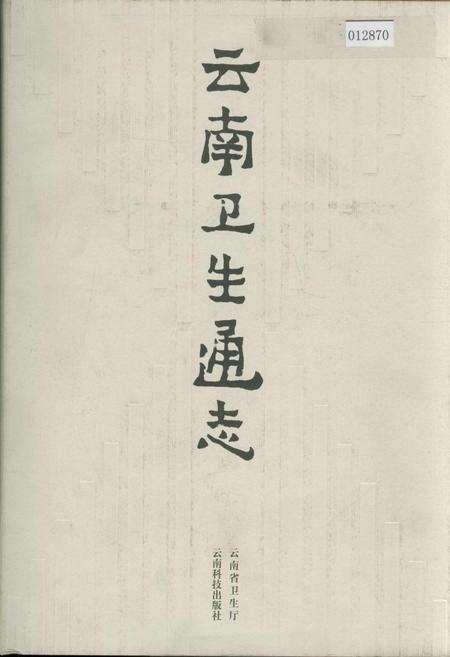 012870
云南卫生通志
云南省卫生厅
云南科技出版社